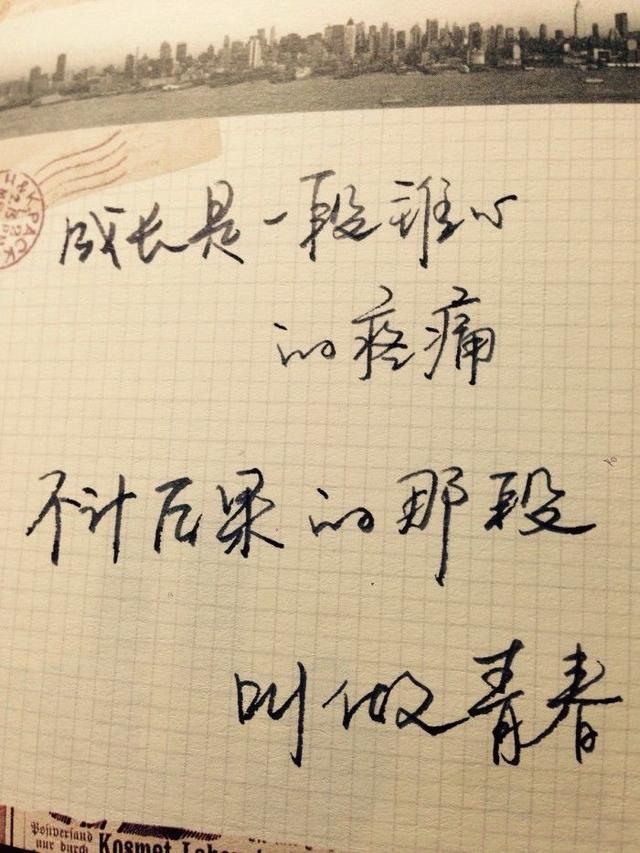 成长是一段锥心
的疼痛
不计后果的那段
叫做青春
Postversand
nur durch Kosmet